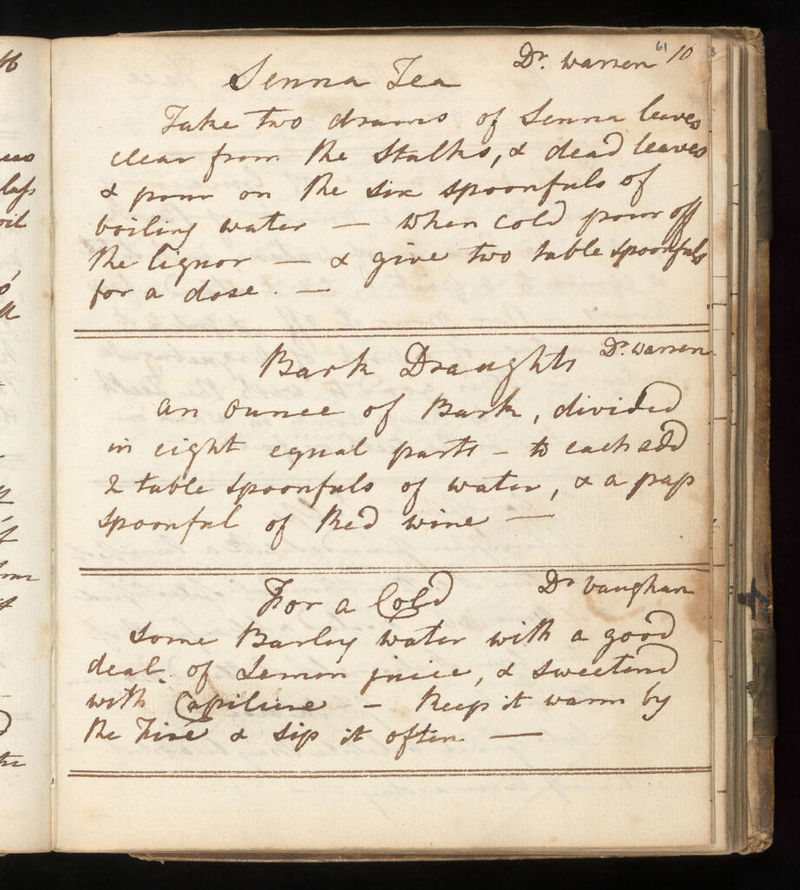 Senna Tea Dr. Warren 61 10
Take two drams of Senna leaves
clear from the Stalks, & dead leaves
& pour on the six spoonfuls of
boiling water — when cold pour off
the liquor — & give two table spoonfuls
for a dose. —
Bark Draughts Dr. Warren
an ounce of Bark, divided
in eight equal parts — to each add
2 table spoonfuls of water, & a pap
spoonful of Red wine —
For a Cold Dr. Vaughan
Some Barley water with a good
deal of Lemon juice, & sweetend
with Capiliere — Keep it warm by
the Fire & sip it often —